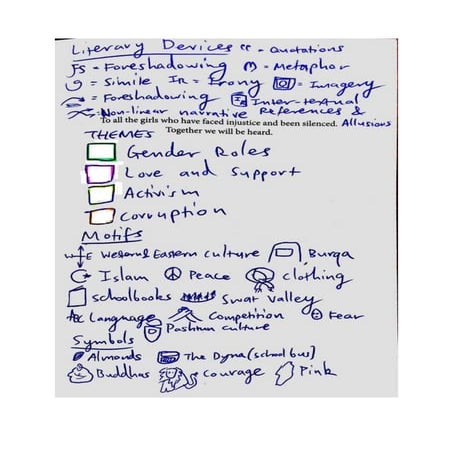 Literary Devices " = Quotations
fs = Foreshadowing m = Metaphor
= Simile IR = Irony = Imagery
= Foreshadowing Intertextual
= Non-linear narrative References &
To all the girls who have faced injustice and been silenced. Allusions
THEMES Together we will be heard.
Gender Roles
Love and Support
Activism
Corruption
Motifs
W E Western & Eastern culture Burqa
Islam Peace clothing
schoolbooks Swat Valley
ABC Language Competition Fear
Pashtun culture
Symbols
Almonds The Dyna (school bus)
Buddhas Courage Pink